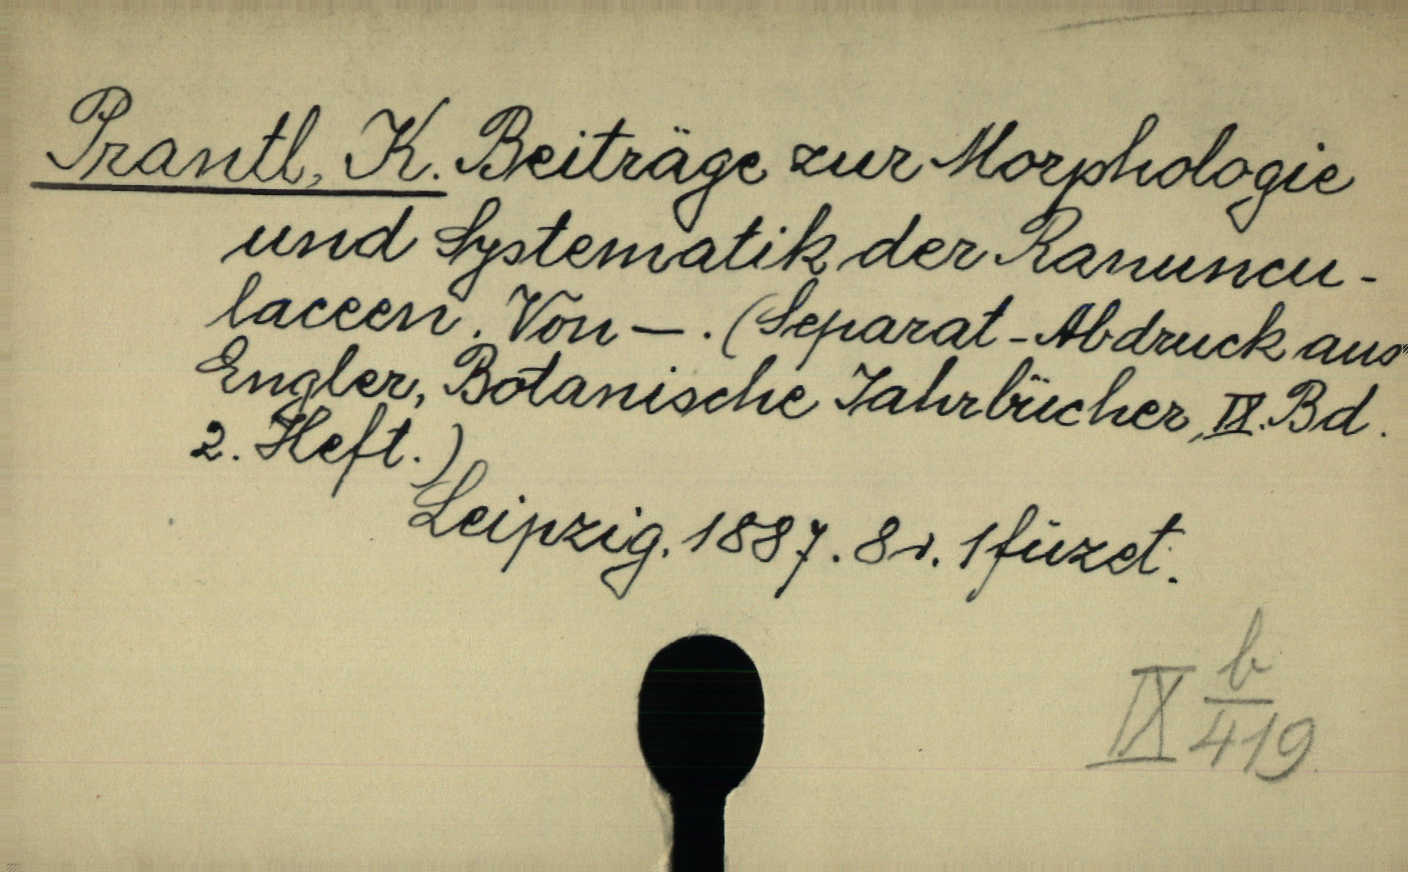 Prantl, K. Beiträge zur Morphologie
und Systematik der Ranuncu-
laceen. Von —. (Separat-Abdruck aus
Engler, Botanische Jahrbücher, IX. Bd.
2. Heft.)
Leipzig. 1887. 8r. 1 füzet.
IX b/419